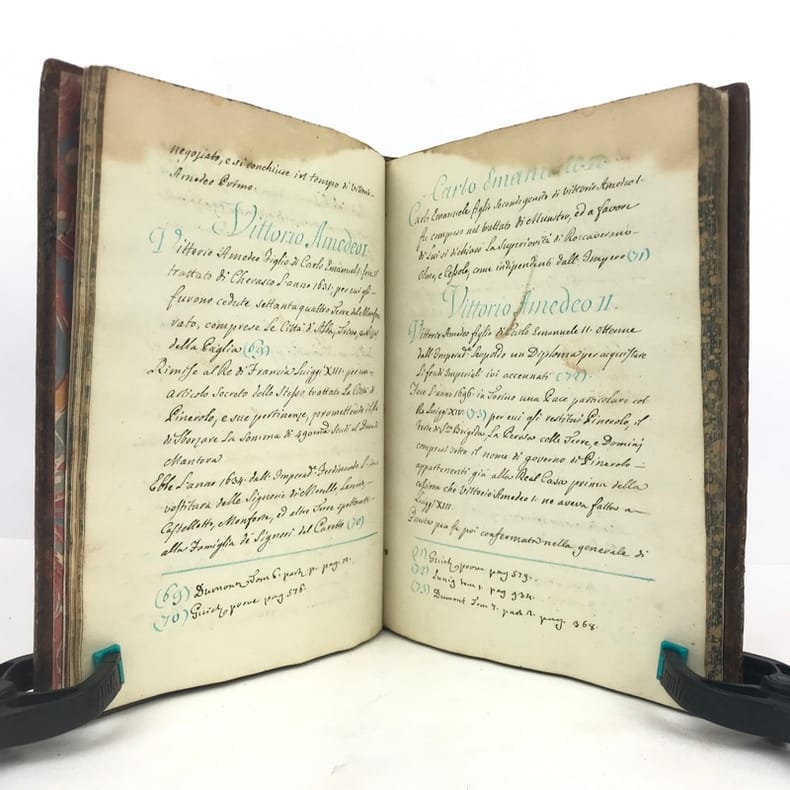 negoziato, e si conchiuse in tempo di Vittorio
Amedeo Primo.
Vittorio Amedeo I.
Vittorio Amedeo figlio di Carlo Emanuel I. fece il
trattato di Cherasco l'anno 1631. per cui gli
furono cedute settanta quattro Terre del Monfer
rato, comprese le Città di Alba, Trino, e
della Paglia (69)
Rimise al Re di Francia Luiggi XIII. per un
articolo Secreto dello Stesso trattato la Città di
Pinerolo, e sue pertinenze, promettendo il Re
di Sborzare la Somma di 490 mila Scudi al Duca di
Mantova
Ebbe l'anno 1634. dall'Imperad.e Ferdinando l'in
vestitura delle Signorie di Monelle,
Castelletto, Monforte, ed altre Terre spettanti
alla Famiglia de Signori del Caretto (70)
(69) Dumont Tom 6. part p. pag. 11.
(70) Guich prove pag 576.
Carlo Emanuele II.
Carlo Emanuele figlio Secondo genito di Vittorio Amedeo I.
fu compreso nel trattato di Munster, ed a favore
di lui si dichiarò la Superiorità di Roccaverano
Olmo, e Cessole, come indipendenti dall'Impero (71)
Vittorio Amedeo II.
Vittorio Amedeo figlio di Carlo Emanuele II. ottenne
dall'Imperad.e Leopoldo un Diploma per acquistare
li feudi Imperiali ivi accennati (72).
Fece l'anno 1696. in Torino una Pace particolare col
Re Luiggi XIV. (73) per cui gli restituì Pinerolo, il
Forte di S.ta Brigida, La Perosa colle Terre, e Dominj
compresi sotto il nome di governo di Pinerolo
appartenenti già alla Real Casa prima della
cessione che Vittorio Amedeo I. ne aveva fatta a
Luiggi XIII.
Questa pace fu poi confermata nella generale di
(71) Guich prove pag 579.
(72) Lunig tom 1. pag 934.
(73) Dumont Tom 7. part 2. pag. 368.